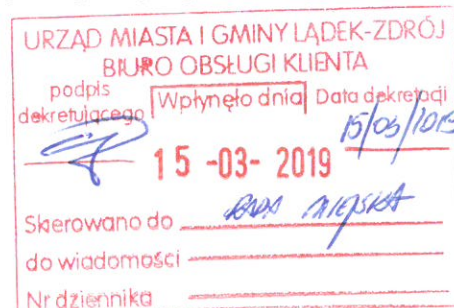 URZĄD MIASTA I GMINY LĄDEK-ZDRÓJ
BIURO OBSŁUGI KLIENTA
podpis dekretującego Wpłynęło dnia Data dekretacji
15/03/2019
15 -03- 2019
Skierowano do RADA MIEJSKA
do wiadomości
Nr dziennika